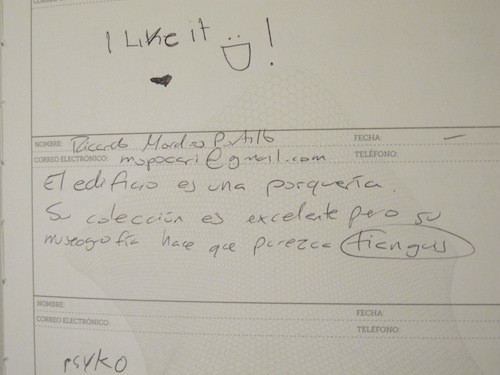 I Like it !
NOMBRE: Ricardo
FECHA:
CORREO ELECTRÓNICO: mopocari@gmail.com
TELÉFONO:
El edificio es una porquería.
Su colección es excelente pero su
museografía hace que parezca tianguis
NOMBRE:
FECHA:
CORREO ELECTRÓNICO:
TELÉFONO:
PSYKO